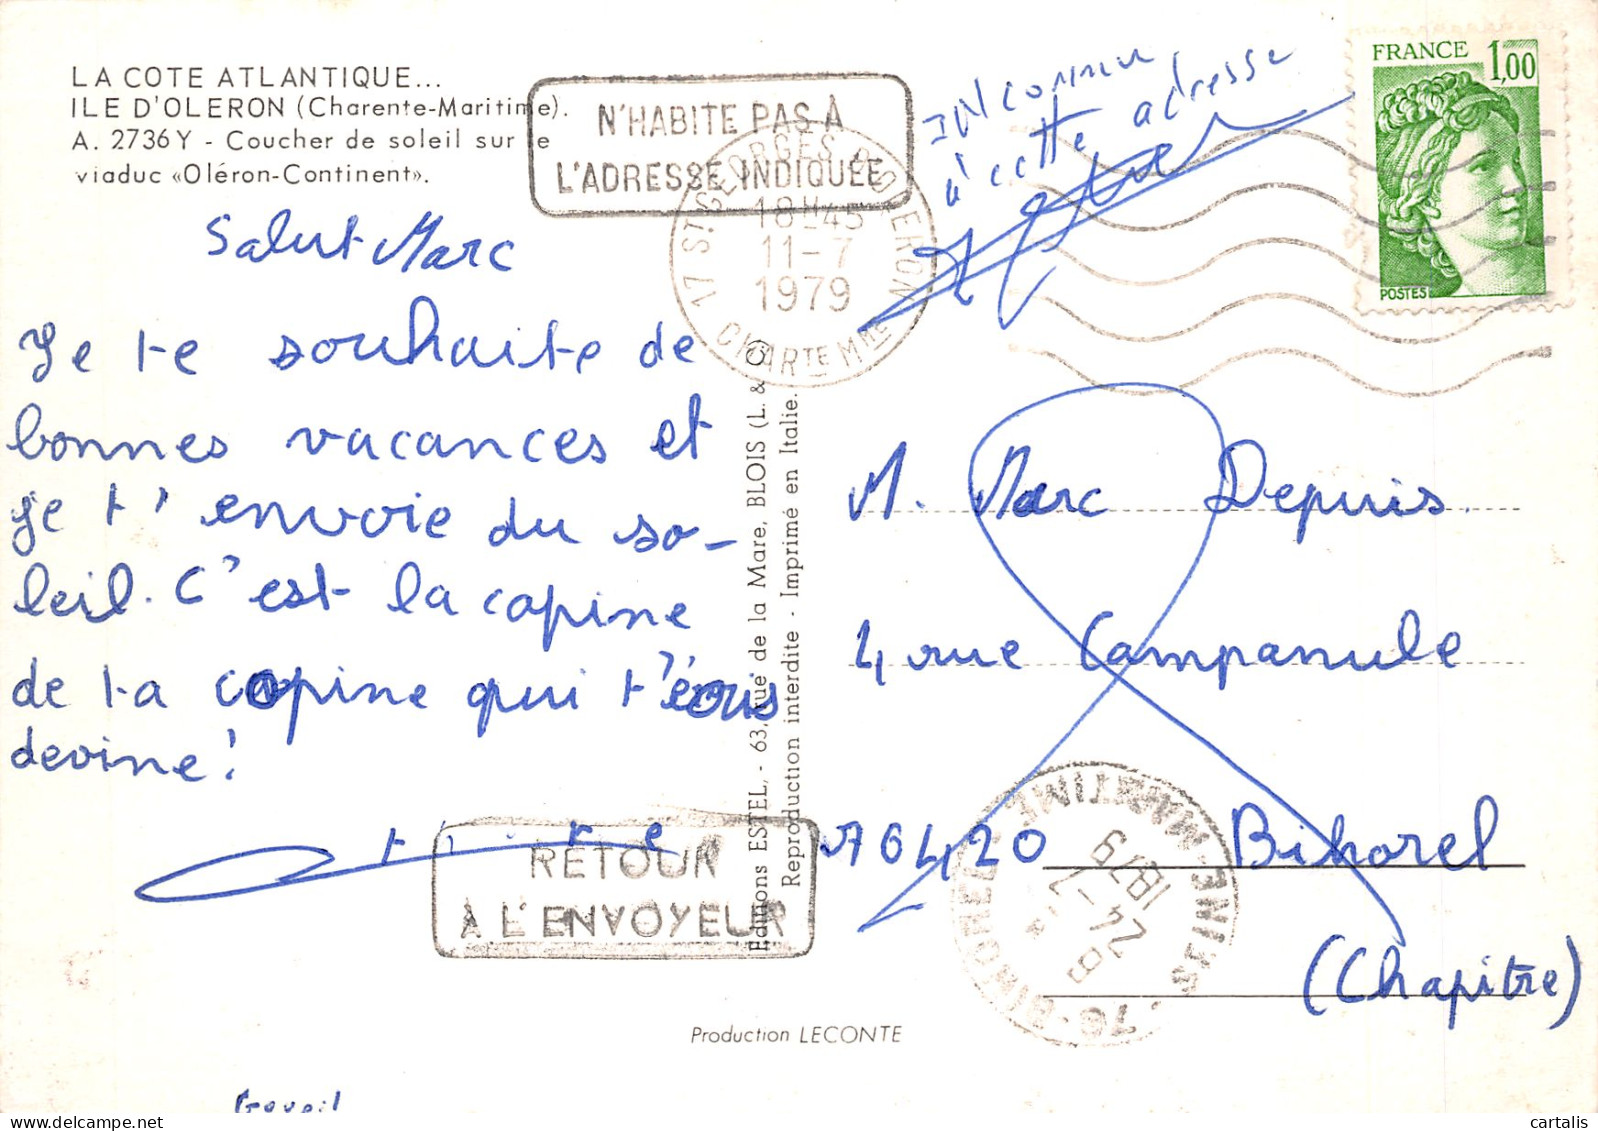 LA COTE ATLANTIQUE...
ILE D'OLERON (Charente-Maritime).
A. 2736 Y - Coucher de soleil sur le
viaduc «Oléron-Continent».
N'HABITE PAS À
L'ADRESSE INDIQUÉE
17 ST GEORGES D'OLERON
18H45
11-7
1979
CHARTE MME
INconnu
à cette adresse
FRANCE 1,00
POSTES
Salut Marc
Je te souhaite de
bonnes vacances et
je t'envoie du so-
leil. C'est la copine
de ta copine qui t'écris
devine!
RETOUR
A L'ENVOYEUR
Editions ESTEL, - 63, rue de la Mare, BLOIS (L. & C)
Reproduction interdite - Imprimé en Italie.
M. Marc Depuis.
4 rue Campanule
76420 Bihorel
(Chapitre)
76-BIHOREL SEINE-MARITIME
8
24-7
1979
Production LECONTE